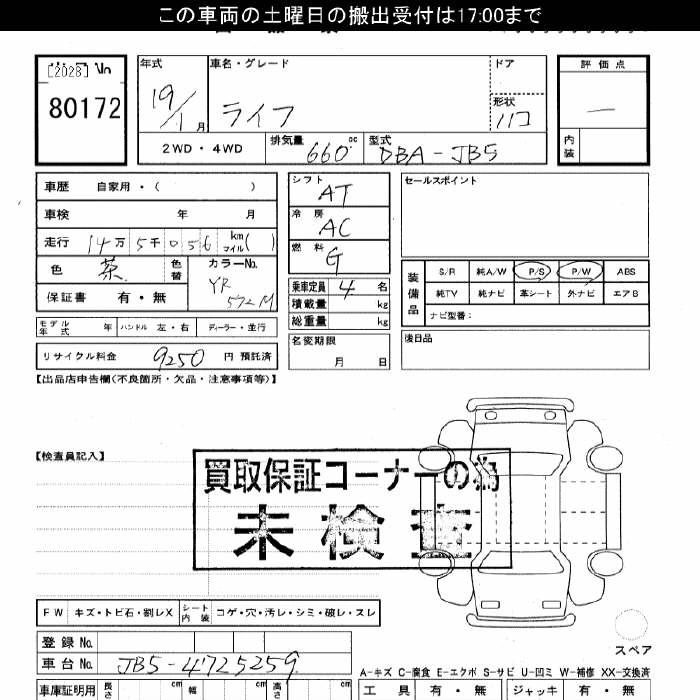 この車両の土曜日の搬出受付は17:00まで
[2028] No
80172
年式 19/1月
車名・グレード ライフ
ドア
形状 ハコ
評価点 —
内装
2WD・4WD
排気量 660cc
型式 DBA-JB5
車歴 自家用・( )
車検 年 月
走行 14万5千056km マイル( )
色 茶 色替
カラーNo. YR572M
保証書 有・無
モデル年式 年 ハンドル 左・右 ディーラー・並行
リサイクル料金 9250 円 預託済
シフト AT
冷房 AC
燃料 G
乗車定員 4 名
積載量 kg
総重量 kg
名変期限 月 日
セールスポイント
装備品
S/R 純A/W P/S P/W ABS
純TV 純ナビ 革シート 外ナビ エアB
ナビ型番:
後日品
【出品店申告欄(不良箇所・欠品・注意事項等)】
【検査員記入】
買取保証コーナーの為
未検査
FW キズ・トビ石・割レX シート内装 コゲ・穴・汚レ・シミ・破レ・スレ
登録No.
車台No. JB5-4725259
車庫証明用 長さ cm 幅 cm 高さ cm
スペア
A-キズ C-腐食 E-エクボ S-サビ U-凹ミ W-補修 XX-交換済
工具 有・無 ジャッキ 有・無